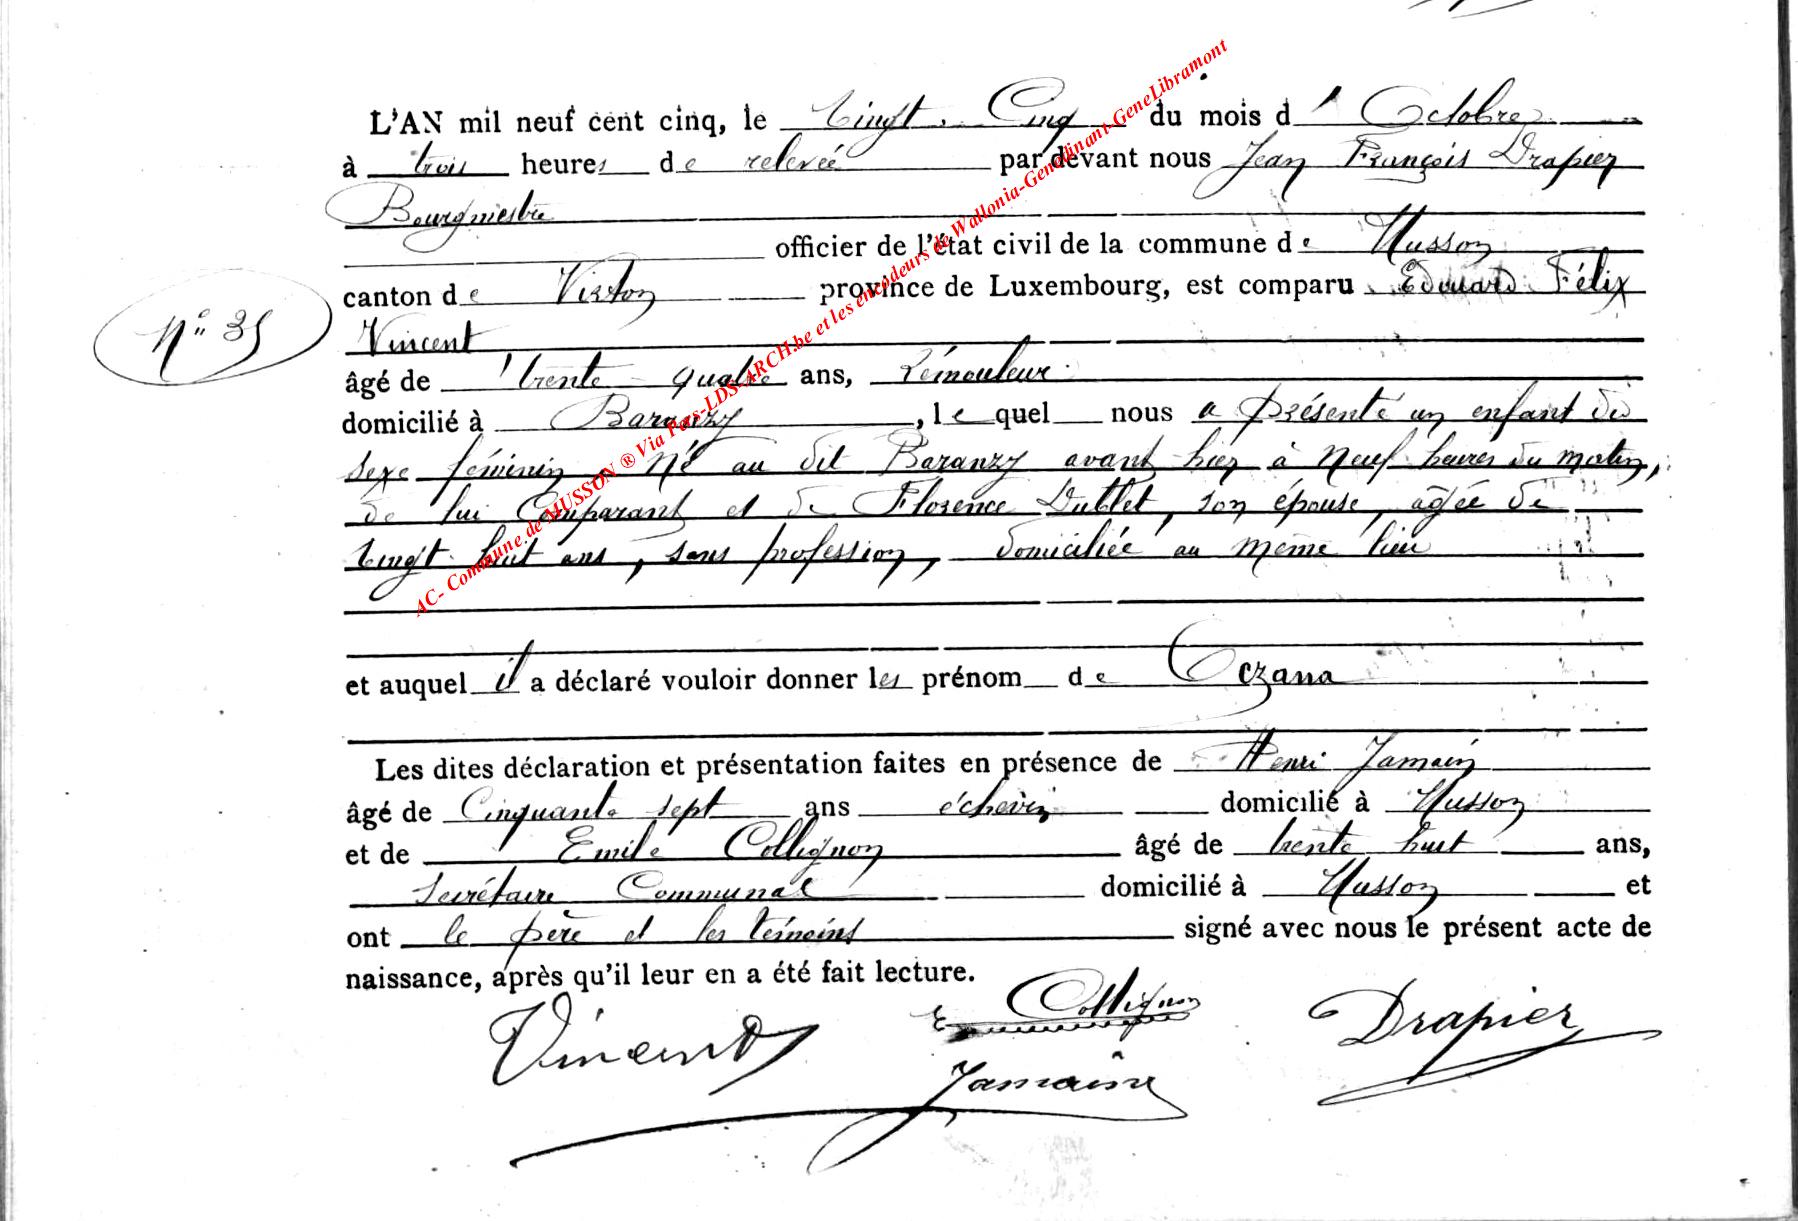 L'AN mil neuf cent cinq, le Vingt Cinq du mois d' Octobre
à trois heures de relevée par devant nous Jean François Drapier
Bourgmestre
officier de l'état civil de la commune de Musson
canton de Virton province de Luxembourg, est comparu Edouard Félix
N° 35
Vincent
âgé de trente quatre ans, Rémouleur
domicilié à Baranzy, lequel nous a présenté un enfant du
sexe féminin né au dit Baranzy avant hier à neuf heures du matin,
de lui Comparant et de Florence Dublet, son épouse, âgée de
vingt huit ans, sans profession, domiciliée au même lieu
et auquel il a déclaré vouloir donner les prénom de Oczana
Les dites déclaration et présentation faites en présence de Henri Jamain
âgé de Cinquante sept ans échevin domicilié à Musson
et de Emile Collignon âgé de trente huit ans,
Secrétaire Communal domicilié à Musson et
ont le père et les témoins signé avec nous le présent acte de
naissance, après qu'il leur en a été fait lecture.
Vincent E Collignon Drapier
Jamain
AC- Commune de MUSSON ® Via Pars-LDS-ARCH.be et les encodeurs de Wallonia-Genedinant-GeneLibramont